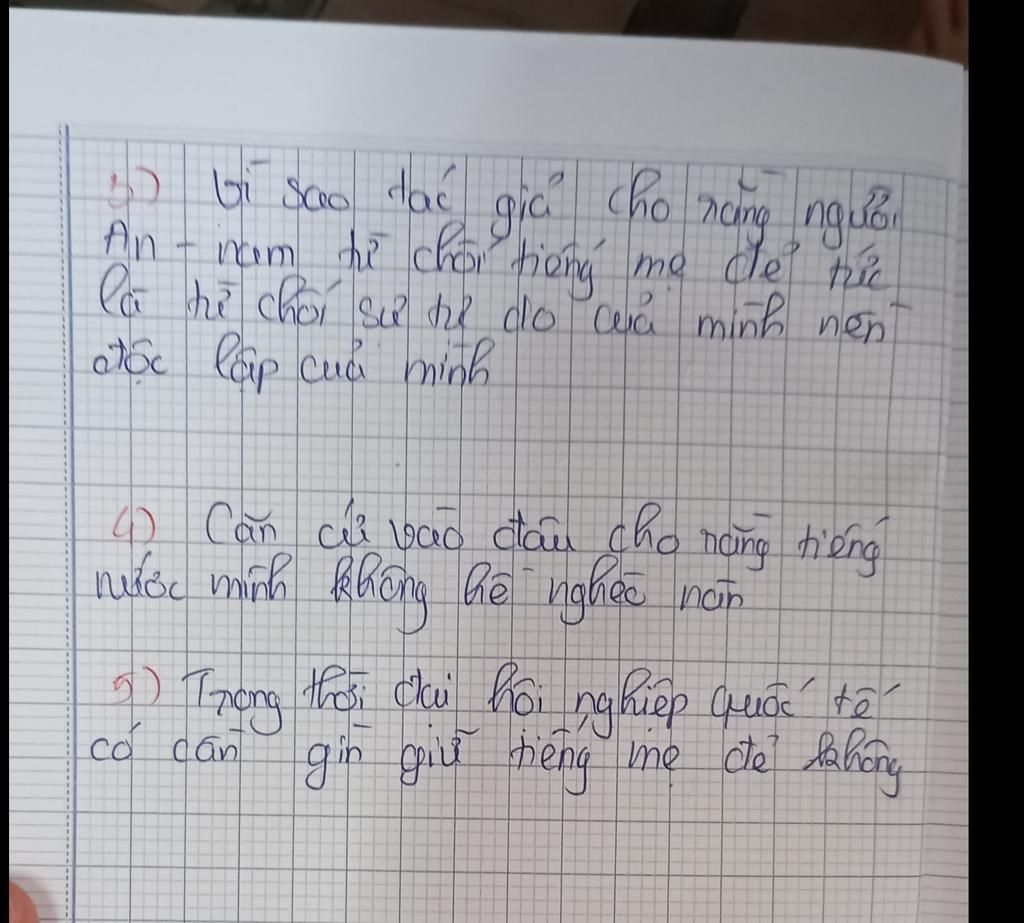 3) Vì sao tác giả cho rằng người
An - nam từ chối tiếng mẹ đẻ tức
là từ chối sự tự do của mình nền
độc lập của mình
4) Căn cứ vào đâu cho rằng tiếng
nước mình không hề nghèo nàn
5) Trong thời đại hội nghiệp quốc tế
có cần gìn giữ tiếng mẹ đẻ không